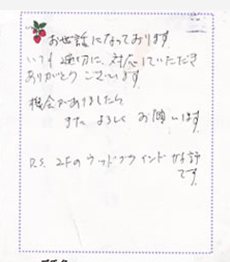 お世話になっております
いつも適切に対応していただき
ありがとうございます
機会がありましたら
また よろしく お願いします
P.S. 2Fのウッドブラインドが好評
です。